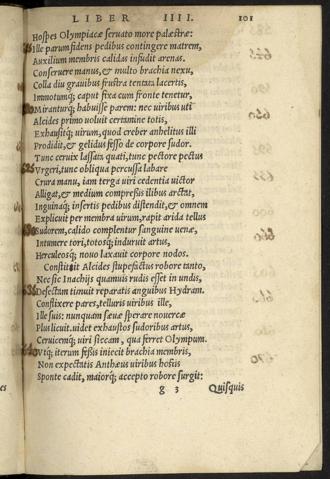 LIBER IIII. 101
Hospes Olympiacæ seruato more palæstræ:
Ille parum fidens pedibus contingere matrem,
Auxilium membris calidas infudit arenas.
Conseruere manus, & multo brachia nexu,
Colla diu grauibus frustra tentata lacertis,
Immotumq; caput fixa cum fronte tenetur,
Miranturq; habuisse parem: nec uiribus uti
Alcides primo uoluit certamine totis,
Exhausitq; uirum, quod creber anhelitus illi
Prodidit, & gelidus fesso de corpore sudor.
Tunc ceruix lassata quati, tunc pectore pectus
Vrgeri, tunc obliqua percussa labare
Crura manu, iam terga uiri cedentia uictor
Alligat, & medium compressis ilibus arctat,
Inguinaq; insertis pedibus distendit, & omnem
Explicuit per membra uirum, rapit arida tellus
Sudorem, calido complentur sanguine uenæ,
Intumere tori, totosq; induruit artus,
Herculeosq; nouo laxauit corpore nodos.
Constitit Alcides stupefactus robore tanto,
Nec sic Inachijs quamuis rudis esset in undis,
Desectam timuit reparatis anguibus Hydram.
Conflixere pares, telluris uiribus ille,
Ille suis: nunquam sæuæ sperare nouercæ
Plus licuit. uidet exhaustos sudoribus artus,
Ceruicemq; uiri siccam, qua ferret Olympum.
Vtq; iterum fessis iniecit brachia membris,
Non expectatis Anthæus uiribus hostis
Sponte cadit, maiorq; accepto robore surgit:
g 3 Quisquis
es